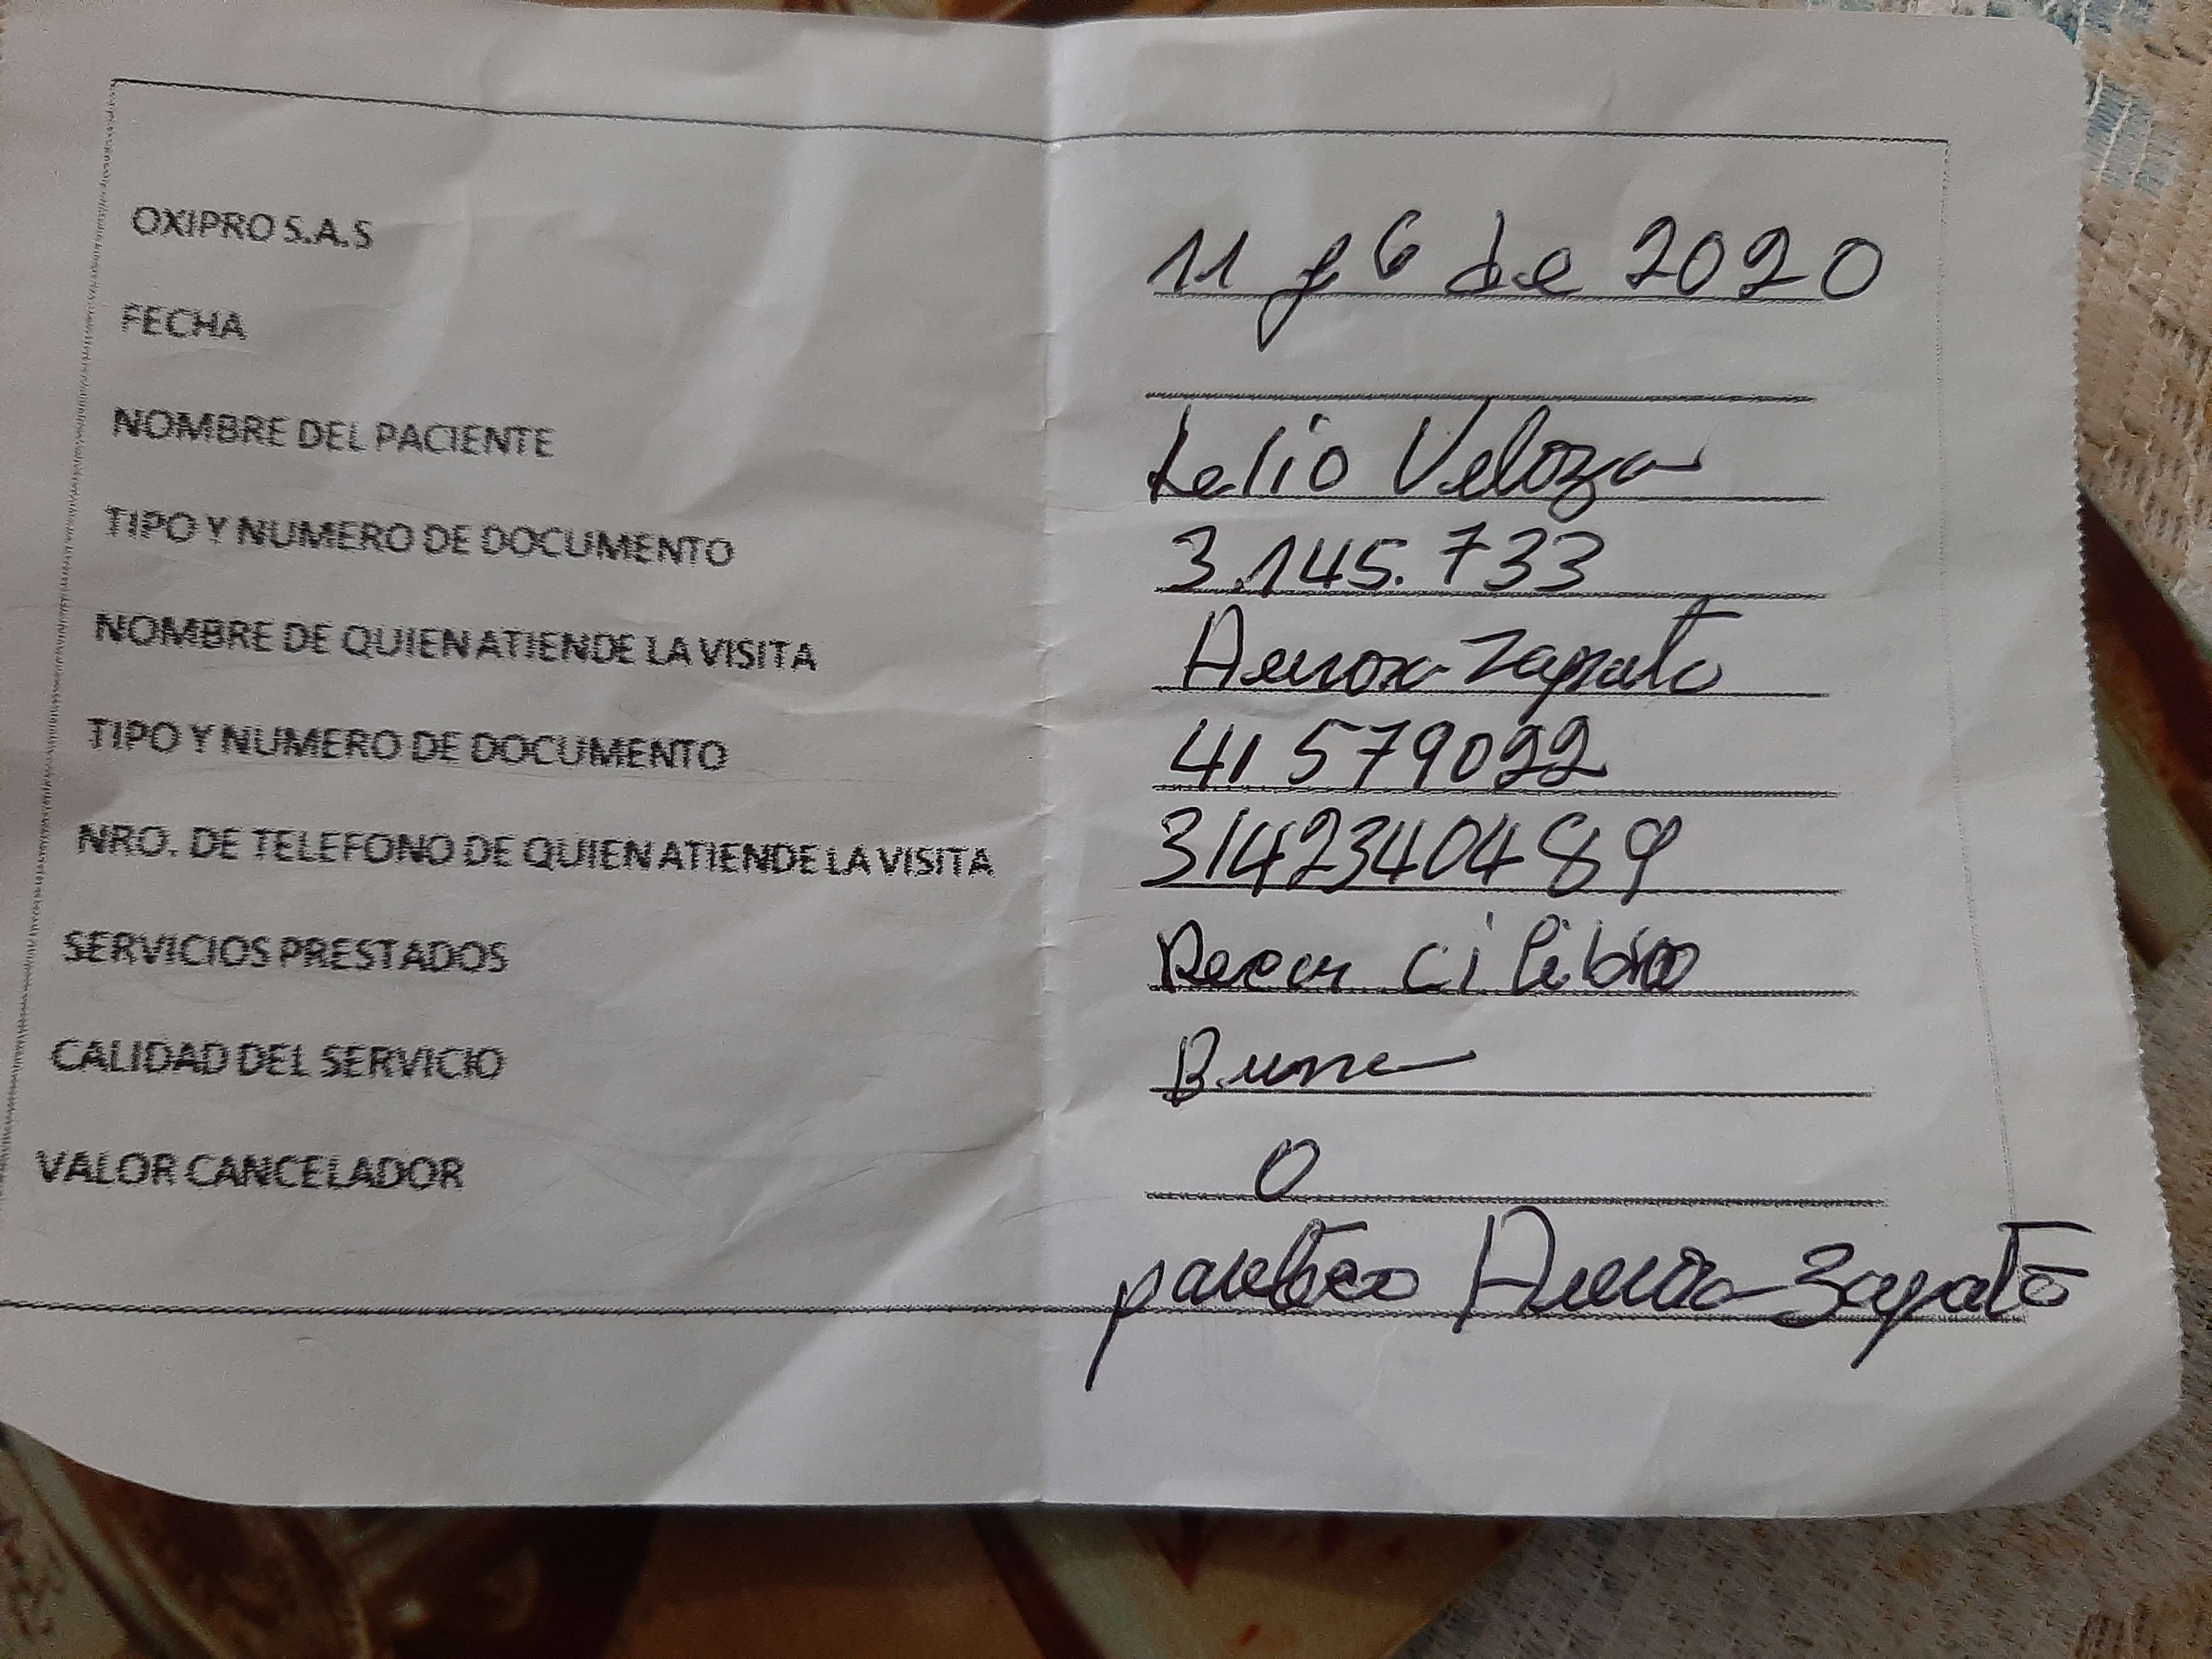 OXIPRO S.A.S
11 y 6 de 2020
FECHA
NOMBRE DEL PACIENTE
Lelio Veloza
TIPO Y NUMERO DE DOCUMENTO
3.145.733
NOMBRE DE QUIEN ATIENDE LA VISITA
Zapata
TIPO Y NUMERO DE DOCUMENTO
41579022
NRO. DE TELEFONO DE QUIEN ATIENDE LA VISITA
3142340489
SERVICIOS PRESTADOS
CALIDAD DEL SERVICIO
VALOR CANCELADOR
0
Zapata